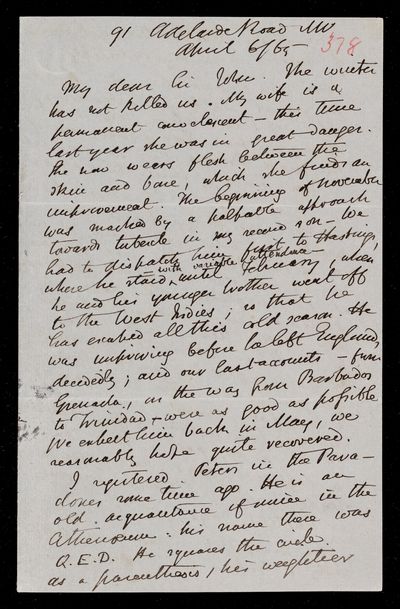 91 Adelaide Road NW
April 6/65
378
My dear Sir John. The winter
has not killed us. My wife is a
permanent convalescent – this time
last year she was in great danger.
She now wears flesh between the
skin and bone, which she finds an
improvement. The beginning of November
was marked by a palpable approach
towards tubercle in my second son – We
had to dispatch him first to Hastings,
where he staid with variable attendance until February, when
he and his younger brother went off
to the West Indies; so that he
has evaded all this cold season. He
was improving before he left England,
decidedly; and our last accounts – from
Grenada, on the way from Barbados
to Trinidad – were as good as possible
We expect him back in May, we
reasonably hope quite recovered.
I registered Peters in the Para-
doxes some time ago. He is an
old acquaintance of mine in the
Athenaeum: his name there was
Q.E.D. He squares the circle.
as a parenthesis, his weightier